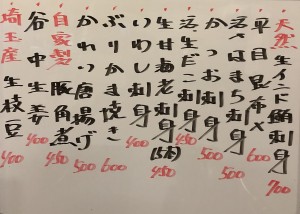 天然生インド鮪刺身 700
平目昆布〆 500
活はまち刺身 500
かつお刺身 500
活生だこ刺身 450
生甘海老刺身(5本) 400
いわし刺身 400
ぶりかま焼き 600
かれい唐揚げ 500
自家製豚角煮 450
谷中生姜 400
埼玉産生枝豆 400